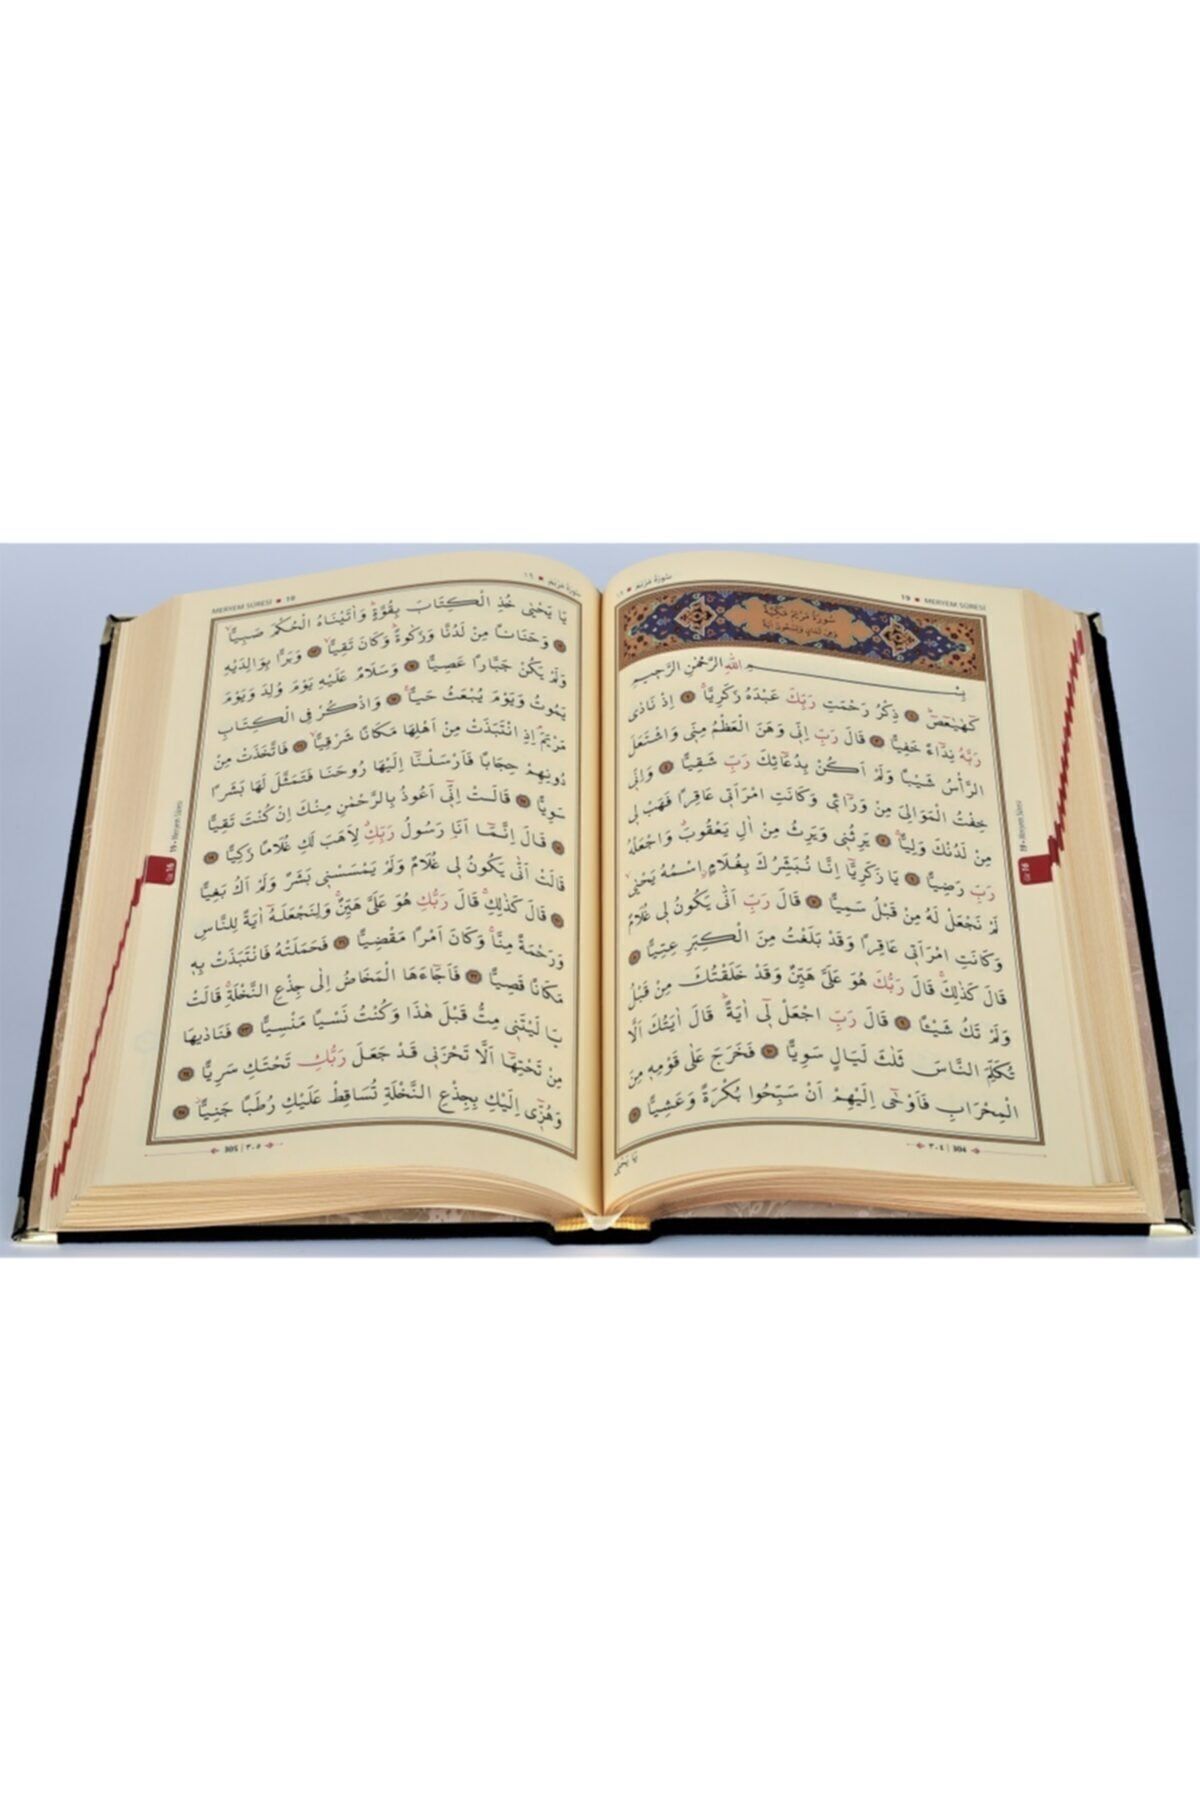 سُورَةُ مَرْيَمَ ١٩
19 ■ MERYEM SÛRESİ
سُورَةُ مَرْيَمَ مَكِّيَّةٌ
وَهِيَ ثَمَانٍ وَتِسْعُونَ اٰيَةً
بِسْمِ اللّٰهِ الرَّحْمٰنِ الرَّحِيمِ
كٓهٰيٰعٓصٓ ۚ ١ ذِكْرُ رَحْمَتِ رَبِّكَ عَبْدَهُ زَكَرِيَّاۚ ٢ اِذْ نَادٰى
رَبَّهُ نِدَٓاءً خَفِيًّا ٣ قَالَ رَبِّ اِنّ۪ى وَهَنَ الْعَظْمُ مِنّ۪ى وَاشْتَعَلَ
الرَّأْسُ شَيْبًا وَلَمْ اَكُنْ بِدُعَٓائِكَ رَبِّ شَقِيًّا ٤ وَاِنّ۪ى
خِفْتُ الْمَوَالِىَ مِنْ وَرَٓاء۪ى وَكَانَتِ امْرَاَت۪ى عَاقِرًا فَهَبْ ل۪ى
مِنْ لَدُنْكَ وَلِيًّاۙ ٥ يَرِثُن۪ى وَيَرِثُ مِنْ اٰلِ يَعْقُوبَۗ وَاجْعَلْهُ
رَبِّ رَضِيًّا ٦ يَا زَكَرِيَّٓا اِنَّا نُبَشِّرُكَ بِغُلَامٍۨ اسْمُهُ يَحْيٰىۙ
لَمْ نَجْعَلْ لَهُ مِنْ قَبْلُ سَمِيًّا ٧ قَالَ رَبِّ اَنّٰى يَكُونُ ل۪ى غُلَامٌ
وَكَانَتِ امْرَاَت۪ى عَاقِرًا وَقَدْ بَلَغْتُ مِنَ الْكِبَرِ عِتِيًّا ٨
قَالَ كَذٰلِكَۚ قَالَ رَبُّكَ هُوَ عَلَىَّ هَيِّنٌ وَقَدْ خَلَقْتُكَ مِنْ قَبْلُ
وَلَمْ تَكُ شَيْـًٔا ٩ قَالَ رَبِّ اجْعَلْ ل۪ٓى اٰيَةًۜ قَالَ اٰيَتُكَ اَلَّا
تُكَلِّمَ النَّاسَ ثَلٰثَ لَيَالٍ سَوِيًّا ١٠ فَخَرَجَ عَلٰى قَوْمِه۪ مِنَ
الْمِحْرَابِ فَاَوْحٰٓى اِلَيْهِمْ اَنْ سَبِّحُوا بُكْرَةً وَعَشِيًّا ١١
٣٠٤ | 304
يَا يَحْيٰى
Cüz 16
19 • Meryem Sûresi
سُورَةُ مَرْيَمَ ■ ١٩
MERYEM SÛRESİ ■ 19
يَا يَحْيٰى خُذِ الْكِتَابَ بِقُوَّةٍۜ وَاٰتَيْنَاهُ الْحُكْمَ صَبِيًّاۙ
١٢ وَحَنَانًا مِنْ لَدُنَّا وَزَكٰوةًۜ وَكَانَ تَقِيًّاۙ ١٣ وَبَرًّا بِوَالِدَيْهِ
وَلَمْ يَكُنْ جَبَّارًا عَصِيًّا ١٤ وَسَلَامٌ عَلَيْهِ يَوْمَ وُلِدَ وَيَوْمَ
يَمُوتُ وَيَوْمَ يُبْعَثُ حَيًّا۟ ١٥ وَاذْكُرْ فِى الْكِتَابِ
مَرْيَمَۢ اِذِ انْتَبَذَتْ مِنْ اَهْلِهَا مَكَانًا شَرْقِيًّاۙ ١٦ فَاتَّخَذَتْ مِنْ
دُونِهِمْ حِجَابًا فَاَرْسَلْنَٓا اِلَيْهَا رُوحَنَا فَتَمَثَّلَ لَهَا بَشَرًا
سَوِيًّا ١٧ قَالَتْ اِنّ۪ٓى اَعُوذُ بِالرَّحْمٰنِ مِنْكَ اِنْ كُنْتَ تَقِيًّا
١٨ قَالَ اِنَّمَٓا اَنَا۬ رَسُولُ رَبِّكِۗ لِاَهَبَ لَكِ غُلَامًا زَكِيًّا ١٩
قَالَتْ اَنّٰى يَكُونُ ل۪ى غُلَامٌ وَلَمْ يَمْسَسْن۪ى بَشَرٌ وَلَمْ اَكُ بَغِيًّا
٢٠ قَالَ كَذٰلِكِۚ قَالَ رَبُّكِ هُوَ عَلَىَّ هَيِّنٌۚ وَلِنَجْعَلَـهُٓ اٰيَةً لِلنَّاسِ
وَرَحْمَةً مِنَّاۚ وَكَانَ اَمْرًا مَقْضِيًّا ٢١ فَحَمَلَتْهُ فَانْتَبَذَتْ بِه۪
مَكَانًا قَصِيًّا ٢٢ فَاَجَٓاءَهَا الْمَخَاضُ اِلٰى جِذْعِ النَّخْلَةِۚ قَالَتْ
يَا لَيْتَن۪ى مِتُّ قَبْلَ هٰذَا وَكُنْتُ نَسْيًا مَنْسِيًّا ٢٣ فَنَادٰيهَا
مِنْ تَحْتِهَٓا اَلَّا تَحْزَن۪ى قَدْ جَعَلَ رَبُّكِ تَحْتَكِ سَرِيًّا ٢٤
وَهُزّ۪ٓى اِلَيْكِ بِجِذْعِ النَّخْلَةِ تُسَاقِطْ عَلَيْكِ رُطَبًا جَنِيًّاۘ ٢٥
305 | ٣٠٥
Cüz 16
19 • Meryem Sûresi